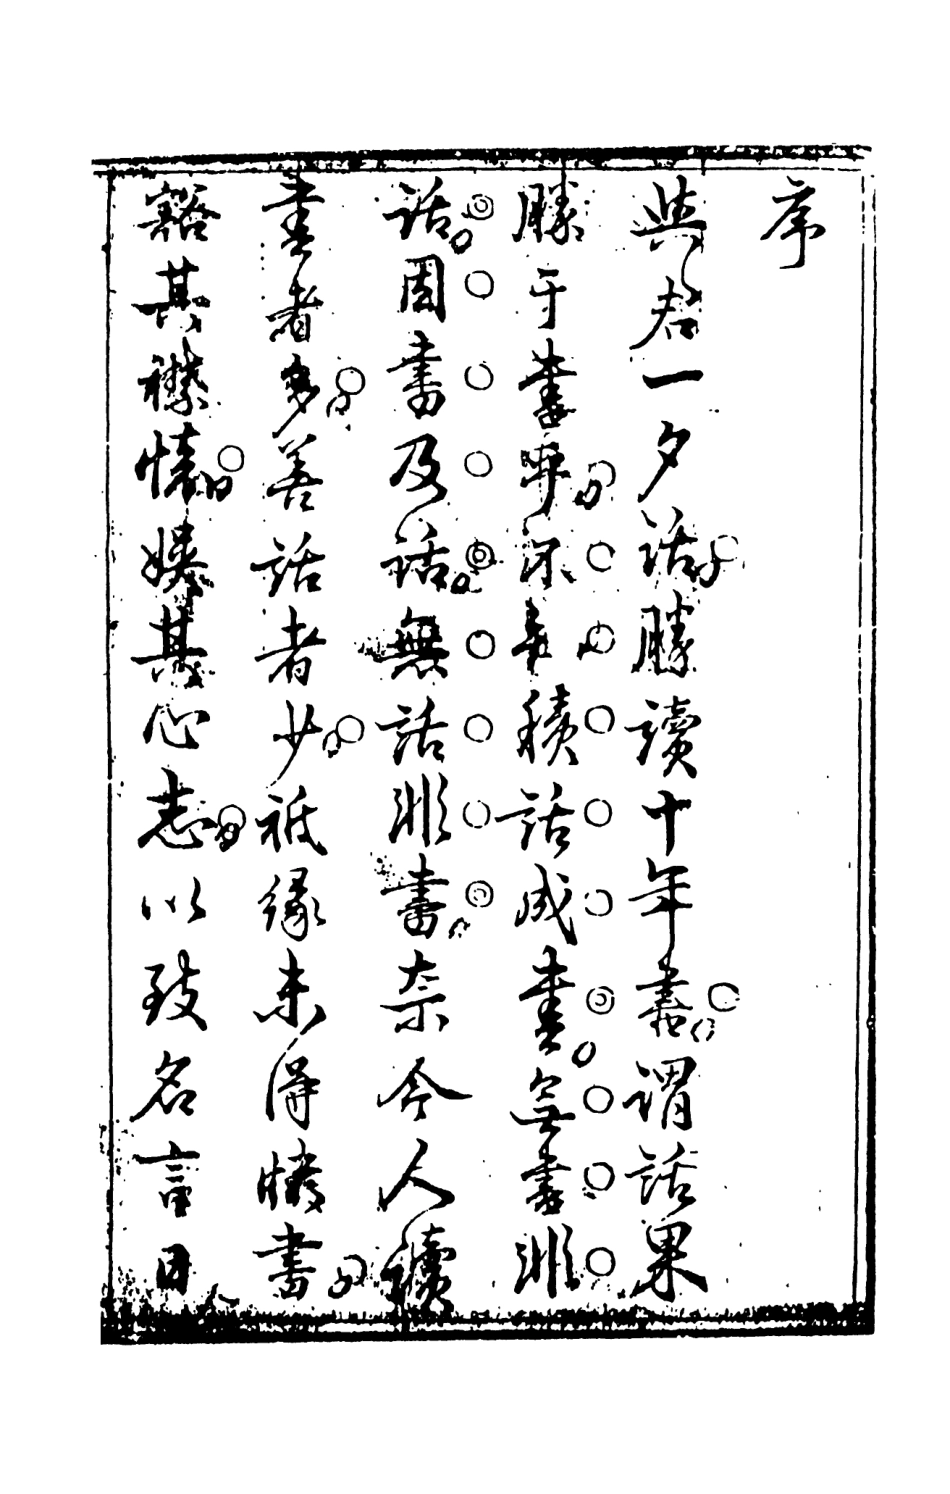 序
與君一夕話勝讀十年書謂話果
勝于書乎不知積話成書無書非
話因書及話無話非書奈今人讀
書者多善話者少祗緣未得快書
豁其襟懷娛其心志以致名言日